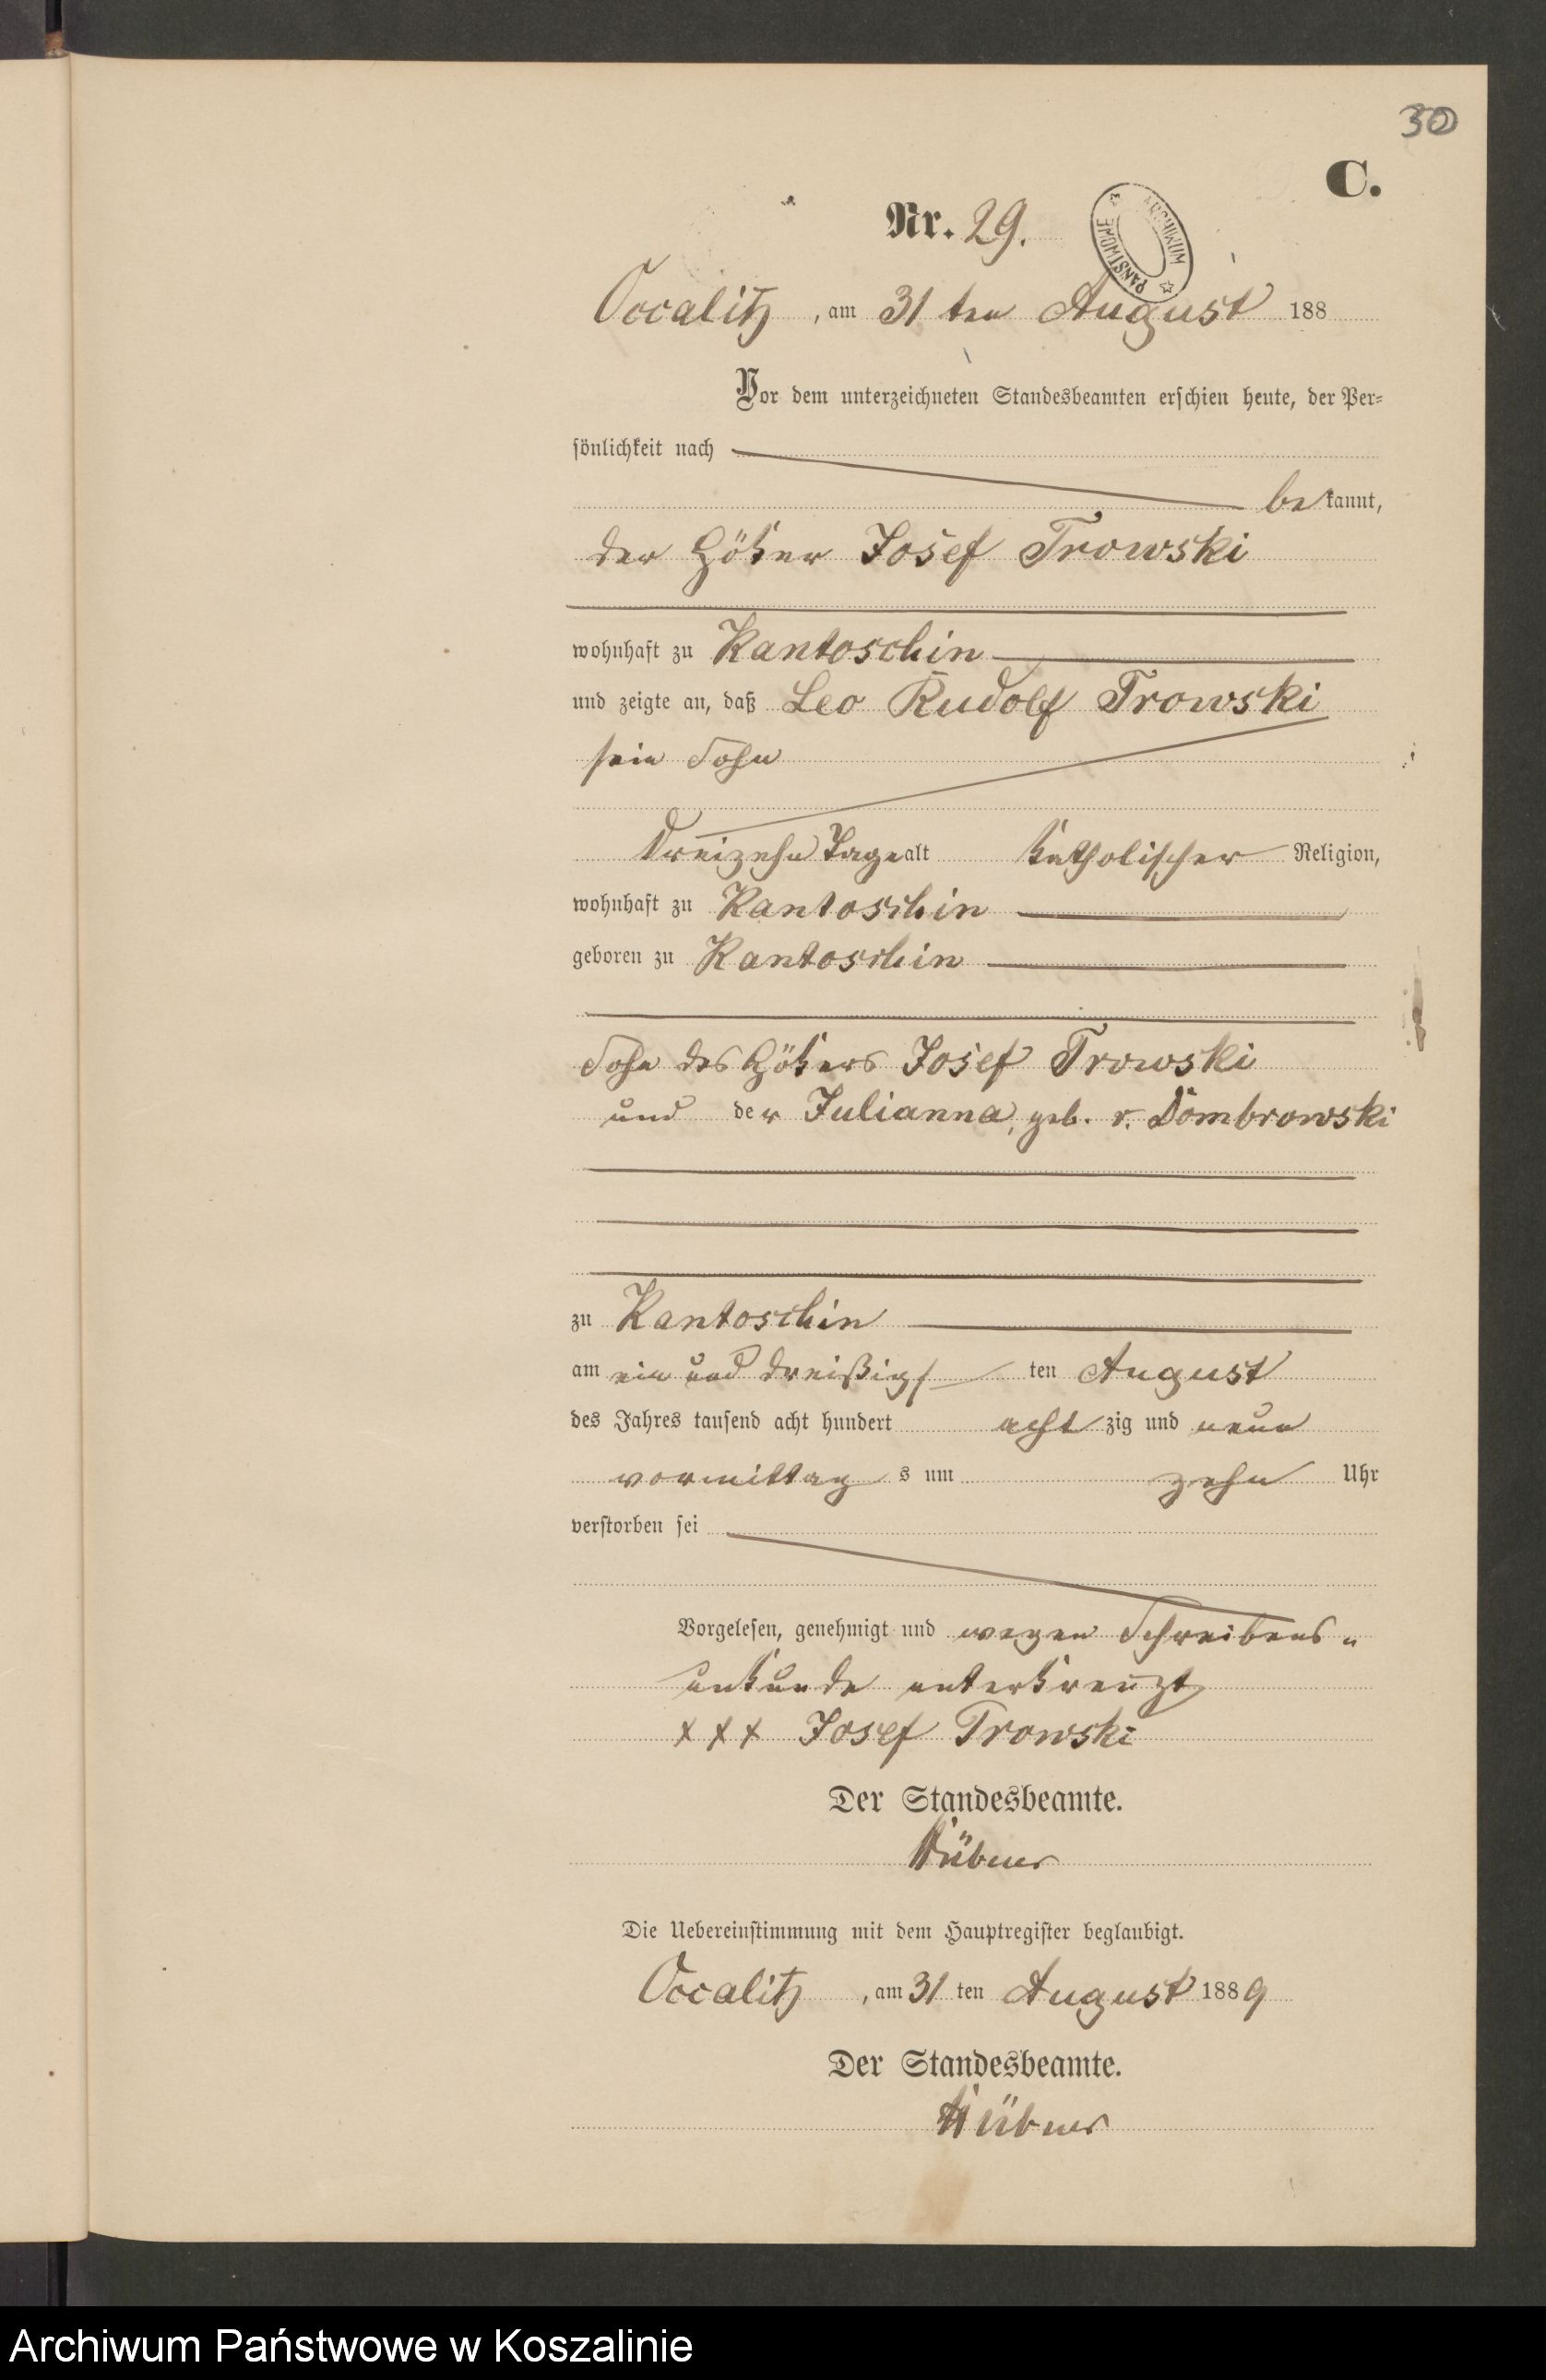 30
C.
Nr. 29.
ARCHIWUM PAŃSTWOWE
Occalitz, am 31 ten August 188
Vor dem unterzeichneten Standesbeamten erschien heute, der Per=
sönlichkeit nach
bekannt,
der Höker Josef Trowski
wohnhaft zu Kantoschin
und zeigte an, daß Leo Rudolf Trowski
sein Sohn
dreizehn Tage alt katholischer Religion,
wohnhaft zu Kantoschin
geboren zu Kantoschin
Sohn des Hökers Josef Trowski
und der Julianna, geb. v. Dombrowski
zu Kantoschin
am ein und dreißigsten August
des Jahres tausend acht hundert acht zig und neun
vormittags um zehn Uhr
verstorben sei
Vorgelesen, genehmigt und wegen Schreibens-
unkunde unterkreuzt
xxx Josef Trowski
Der Standesbeamte.
Die Uebereinstimmung mit dem Hauptregister beglaubigt.
Occalitz, am 31 ten August 1889
Der Standesbeamte.
Archiwum Państwowe w Koszalinie